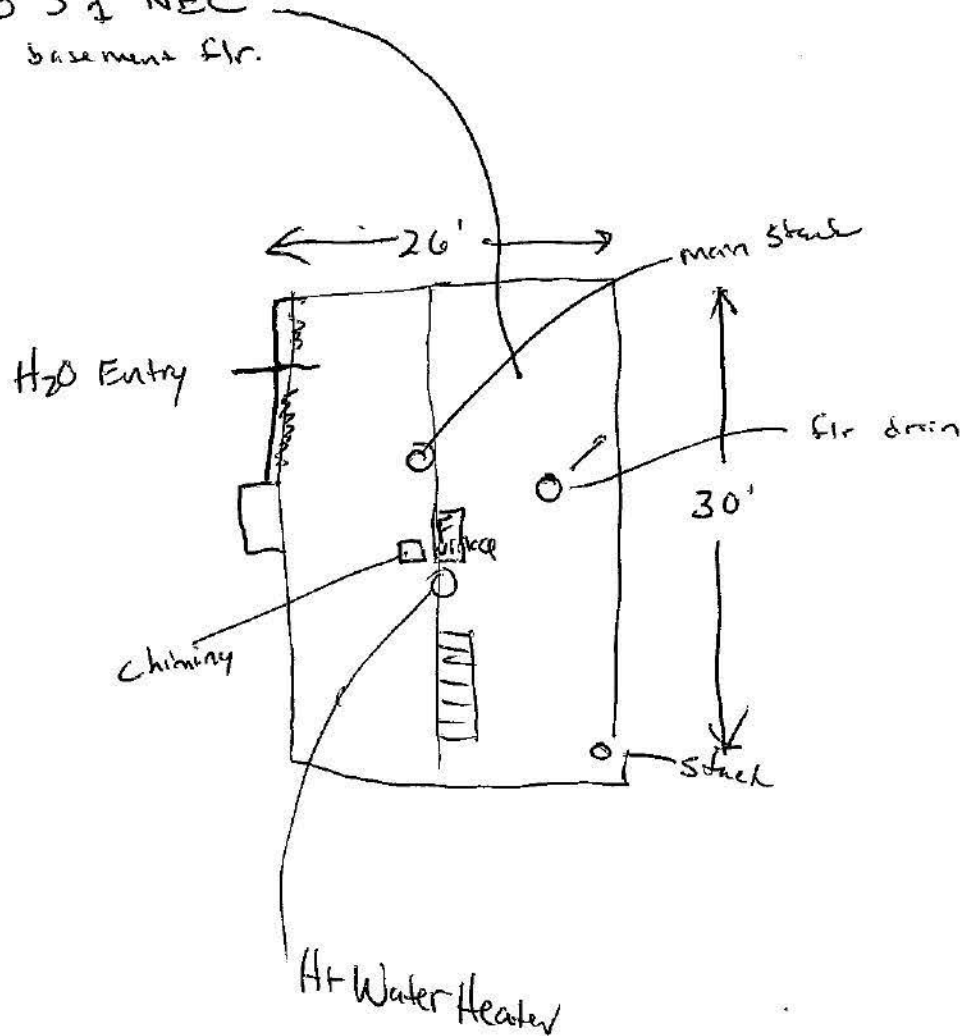 NEC
basement flr.
26'
main Stack
H2O Entry
flr drain
30'
Furnace
Chiminy
Stack
Ht Water Heater